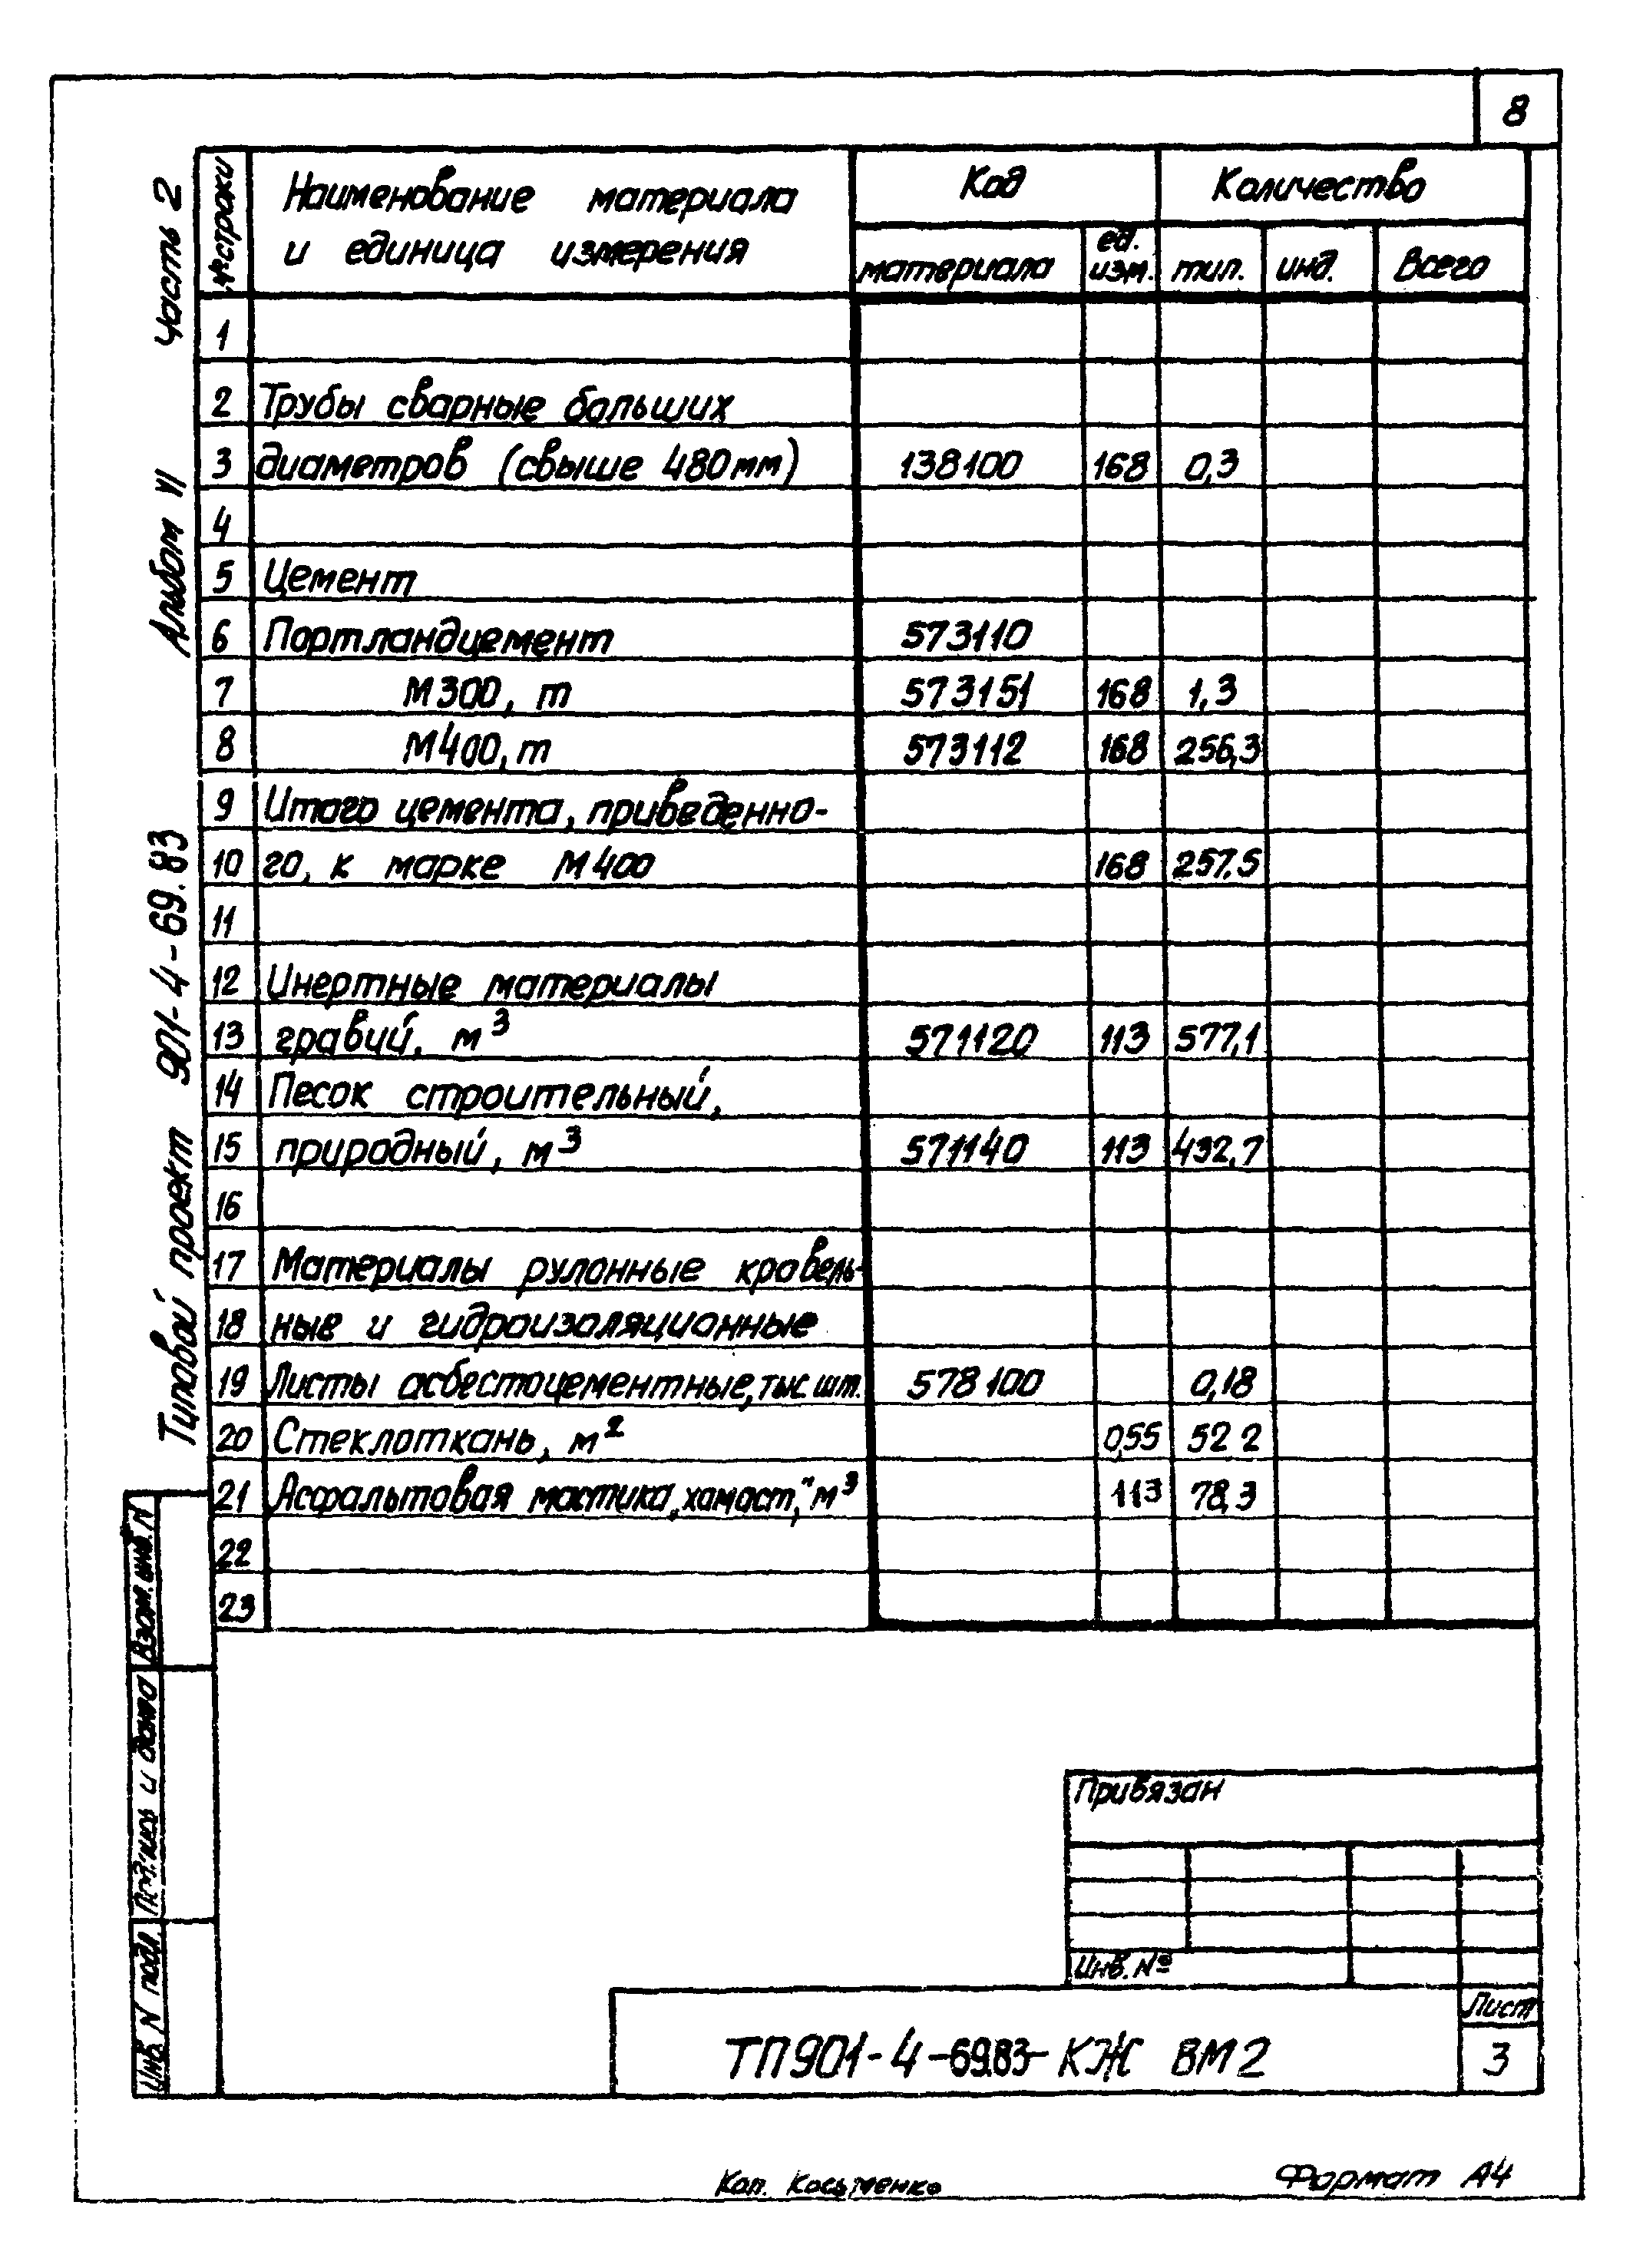 8
Часть 2
Альбом VI
Типовой проект 901-4-69.83
№ строки
Наименование материала
и единица измерения
Код
Количество
материала
ед.
изм.
тип.
инд.
Всего
1
2 Трубы сварные больших
3 диаметров (свыше 480мм) 138100 168 0,3
4
5 Цемент
6 Портландцемент 573110
7 М300, т 573151 168 1,3
8 М400, т 573112 168 256,3
9 Итого цемента, приведенно-
10 го, к марке М400 168 257.5
11
12 Инертные материалы
13 гравий, м³ 571120 113 577,1
14 Песок строительный,
15 природный, м³ 571140 113 432,7
16
17 Материалы рулонные кровель-
18 ные и гидроизоляционные
19 Листы асбестоцементные, тыс. шт. 578100 0,18
20 Стеклоткань, м² 0,55 52 2
21 Асфальтовая мастика, хамаст," м³ 113 78,3
22
23
Взам. инв. N
Подпись и дата
Инв. N подл
Привязан
Инв. №
ТП901-4-69.83- КЖ ВМ2
Лист
3
Коп. Косьменко
Формат А4